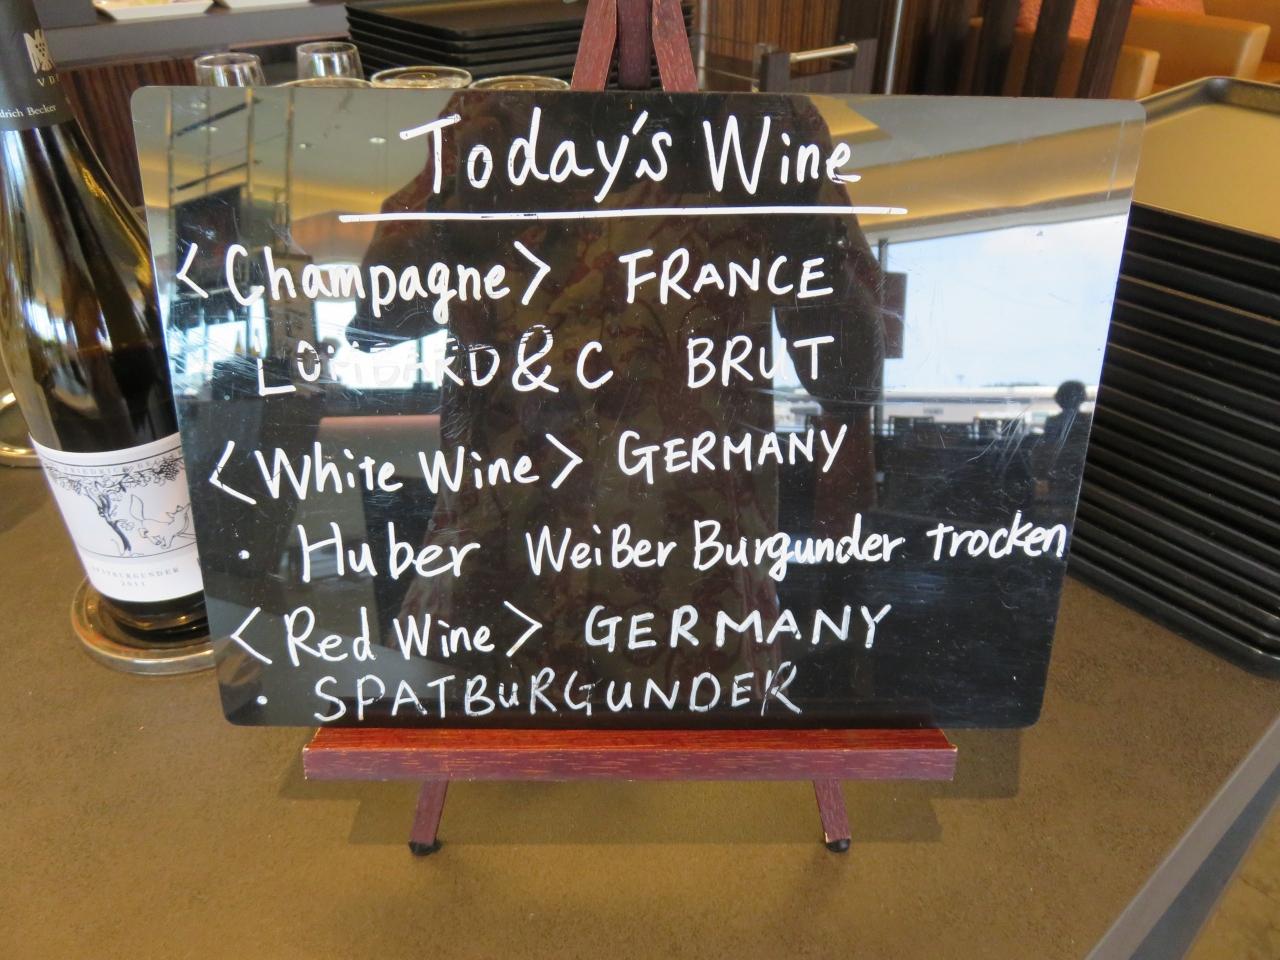 Today's Wine
<Champagne> FRANCE
LOMBARD & C BRUT
<White Wine> GERMANY
· Huber Weißer Burgunder trocken
<Red Wine> GERMANY
· SPATBURGUNDER
VD
drich Becker
FRIEDRICH
SPATBURGUNDER
2011